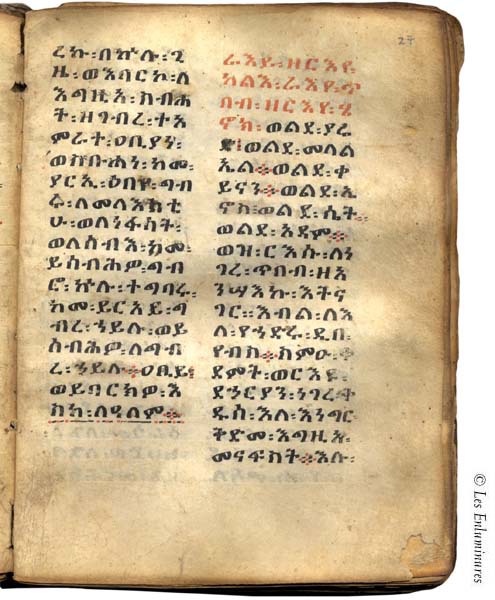 ረኩ፡በኵሉ፡ጊ
ዜ፡ወእባርኮ፡ለ
እግዚአ፡ስብሐ
ት፡ዘገብረ፡ተአ
ምራት፡ዐቢያነ፡
ወስቡሐነ፡ከመ፡
ያርኢ፡ዕበየ፡ግብ
ሩ፡ለመላእክቲ
ሁ፡ወለነፋስት፡
ወለሰብእ፡ከመ፡
ይሰብሕዎ፡ግብ
ሮ፡ኵሉ፡ተግባሩ፡
ከመ፡ይርአይ፡ግ
ብረ፡ኀይሉ፡ወይ
ሰብሕዎ፡ለግብ
ረ፡ኀይሉ፨ዐቢይ፡
ወይባርክዎ፡እ
ስከ፡ለዓለም፨
24
ራእይ፡ዘርእየ፡
ካልእ፡ራእየ፡ጥ
በብ፡ዘርእየ፡ሄ
ኖክ፡ወልደ፡ያሬ
ድ፡ወልደ፡መላል
ኤል፨ወልደ፡ቀ
ይናን፨ወልደ፡ሄ
ኖስ፡ወልደ፡ሴት፡
ወልደ፡አዳም፨
ወዝ፡ርእሱ፡ለነ
ገረ፡ጥበብ፡ዘአ
ንሣእኩ፡እትና
ገር፡እብል፡ለእ
ለ፡የኀድሩ፡ዲበ፡
የብስ፨ስምዑ፡ቀ
ደምት፡ወርእዩ፡
ደኃርያን፡ነገረ፡ቅ
ዱስ፡እለ፡እነግር፡
ቅድመ፡እግዚአ፡
መናፋስት፨እሉ፡
© Les Enluminures